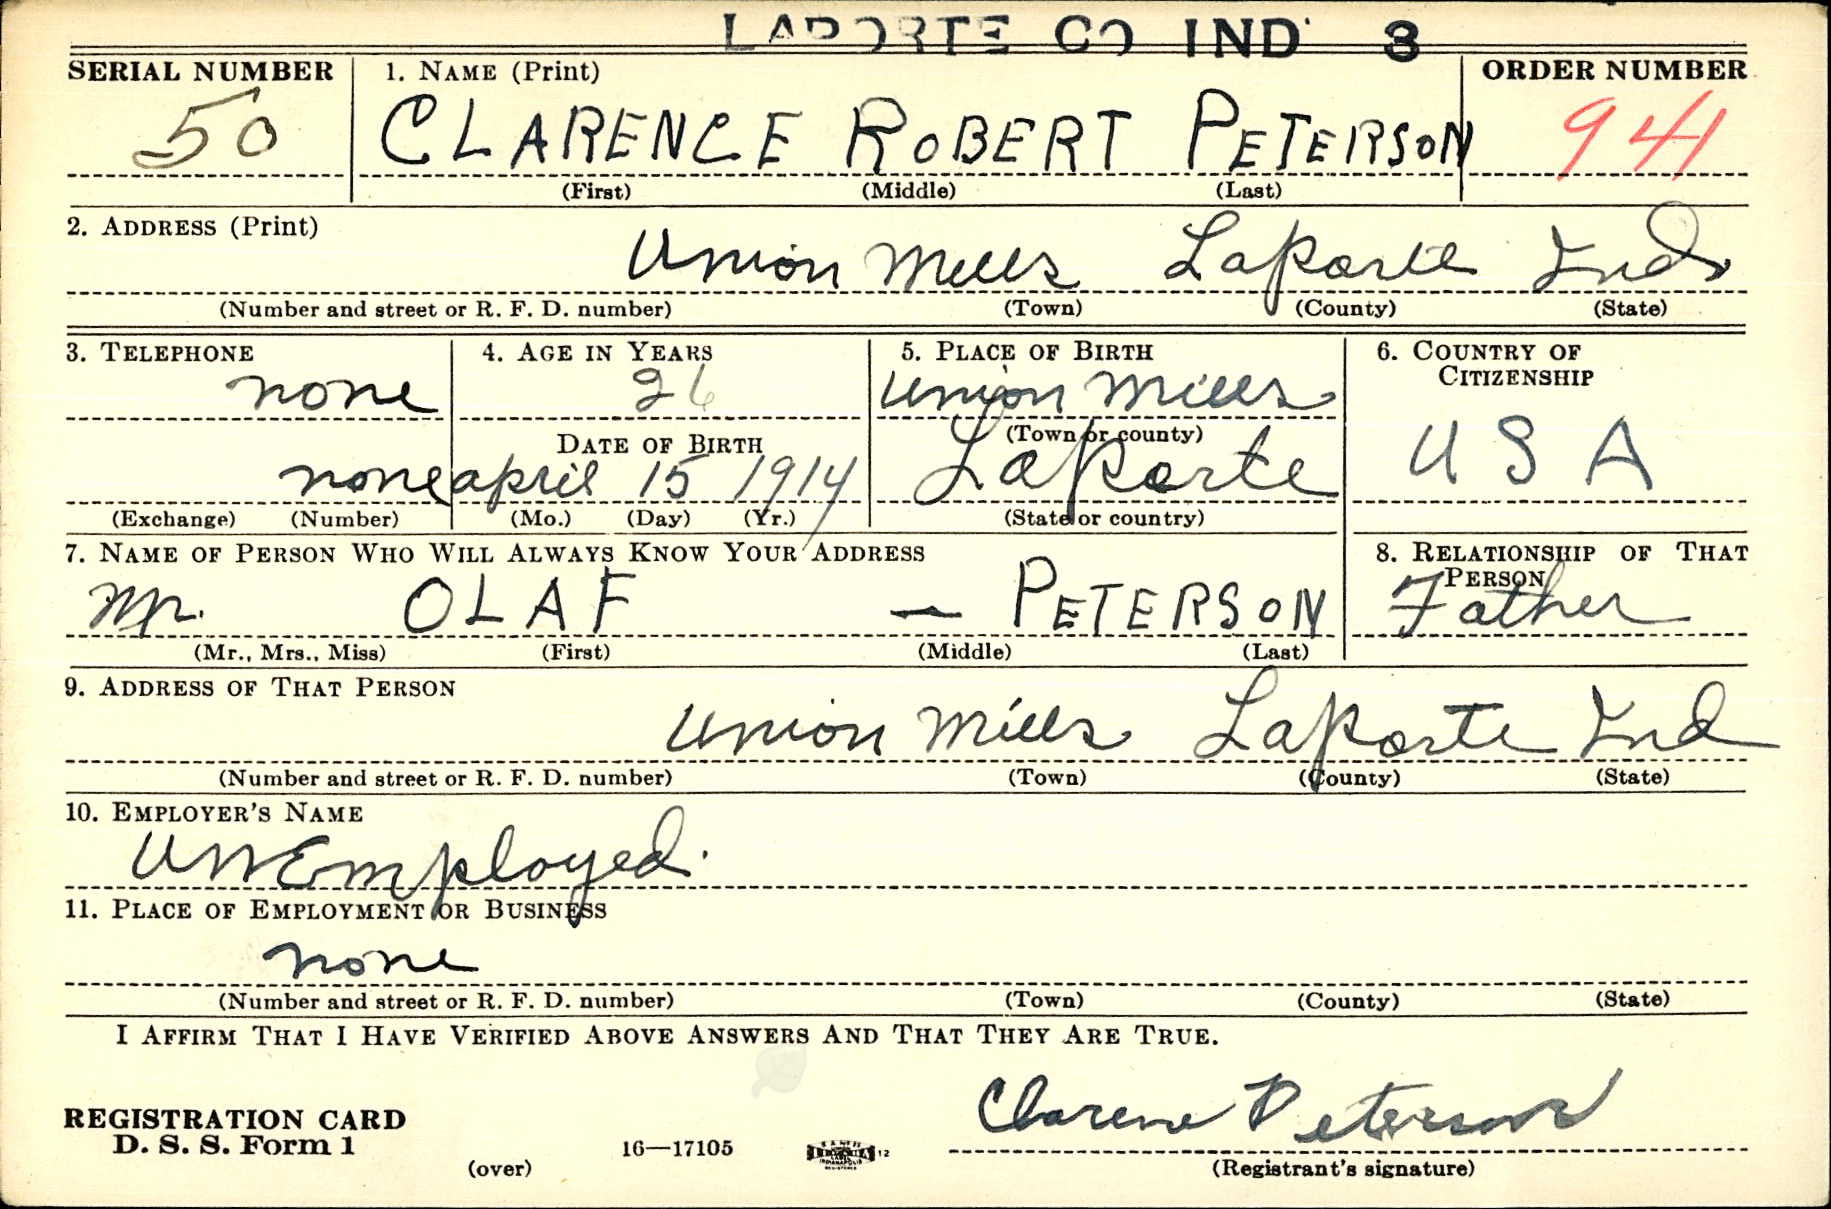 LAPORTE CO IND 3
SERIAL NUMBER 1. NAME (Print) ORDER NUMBER
50 CLARENCE ROBERT PETERSON 941
(First) (Middle) (Last)
2. ADDRESS (Print)
Union Mills LaPorte Ind.
(Number and street or R. F. D. number) (Town) (County) (State)
3. TELEPHONE 4. AGE IN YEARS 5. PLACE OF BIRTH 6. COUNTRY OF
CITIZENSHIP
none 26 Union Mills
(Town or county)
DATE OF BIRTH
none april 15 1914 LaPorte U S A
(Exchange) (Number) (Mo.) (Day) (Yr.) (State or country)
7. NAME OF PERSON WHO WILL ALWAYS KNOW YOUR ADDRESS 8. RELATIONSHIP OF THAT
PERSON
Mr. OLAF — PETERSON Father
(Mr., Mrs., Miss) (First) (Middle) (Last)
9. ADDRESS OF THAT PERSON
Union Mills LaPorte Ind
(Number and street or R. F. D. number) (Town) (County) (State)
10. EMPLOYER'S NAME
UnEmployed.
11. PLACE OF EMPLOYMENT OR BUSINESS
none
(Number and street or R. F. D. number) (Town) (County) (State)
I AFFIRM THAT I HAVE VERIFIED ABOVE ANSWERS AND THAT THEY ARE TRUE.
Clarence Peterson
REGISTRATION CARD
D. S. S. Form 1 16—17105 12
(over) (Registrant's signature)